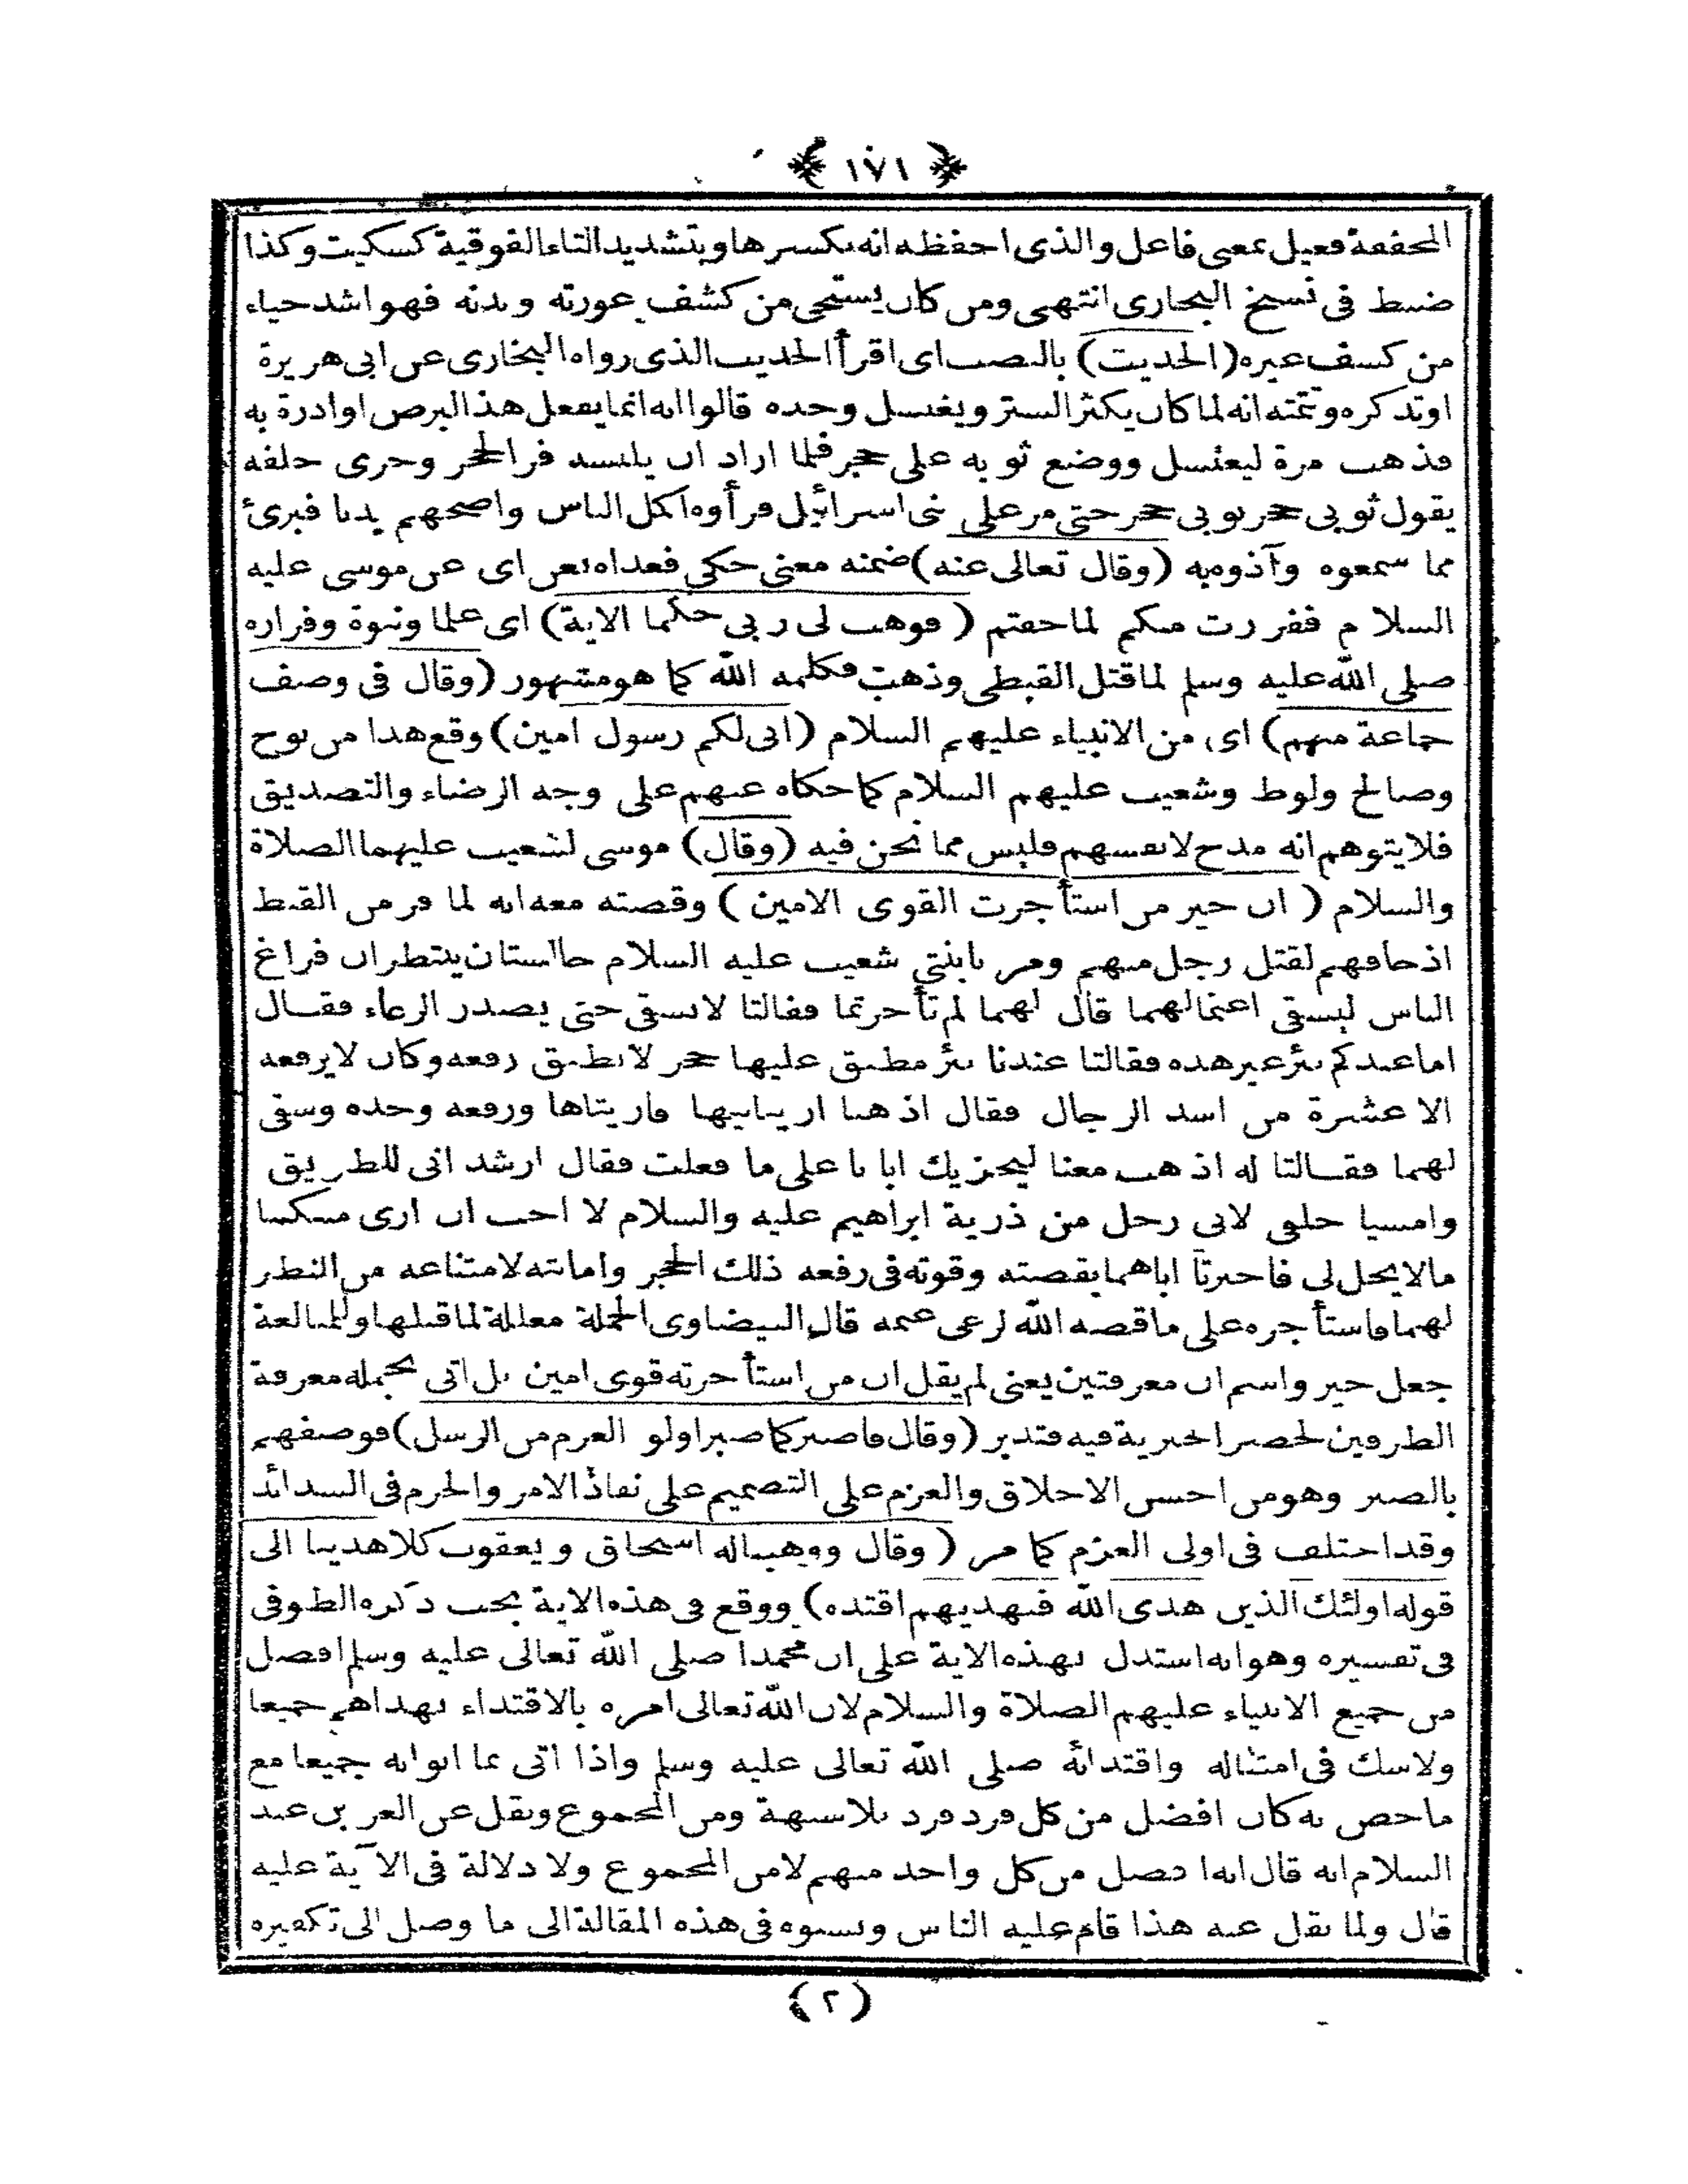 ﴿ ١٧١ ﴾
المخففة فعيل بمعنى فاعل والذى احفظه انه بكسرها وبتشديد التاء الفوقية كسكيت وكذا
ضبط فى نسخ البخارى انتهى ومن كان يستحى من كشف عورته وبدنه فهو اشد حياء
من كشف غيره (الحديث) بالنصب اى اقرأ الحديث الذى رواه البخارى عن ابى هريرة
اوتذكره وتتمته انه لما كان يكثر الستر ويغتسل وحده قالوا انه انما يفعل هذا لبرص او ادرة به
فذهب مرة ليغتسل ووضع ثوبه على حجر فلما اراد ان يلبسه فر الحجر وجرى خلفه
يقول ثوبى حجر ثوبى حجر حتى مر على بنى اسرائيل فرأوه اكمل الناس واصحهم بدنا فبرئ
مما سمعوه وآذوه به (وقال تعالى عنه) ضمنه معنى حكى فعداه بعن اى عن موسى عليه
السلام ففررت منكم لما خفتم (فوهب لى ربى حكما الاية) اى علما ونبوة وفراره
صلى الله عليه وسلم لما قتل القبطى وذهب فكلمه الله كما هو مشهور (وقال فى وصف
جماعة منهم) اى من الانبياء عليهم السلام (انى لكم رسول امين) وقع هذا من نوح
وصالح ولوط وشعيب عليهم السلام كما حكاه عنهم على وجه الرضاء والتصديق
فلا يتوهم انه مدح لانفسهم فليس مما نحن فيه (وقال) موسى لشعيب عليهما الصلاة
والسلام (ان خير من استأجرت القوى الامين) وقصته معه انه لما فر من القبط
اذ خافهم لقتل رجل منهم ومر بابنتى شعيب عليه السلام جالستان ينتظران فراغ
الناس ليسقى اغنامهما قال لهما لم تأخرتما فقالتا لانسقى حتى يصدر الرعاء فقال
اما عندكم بئر غير هذه فقالتا عندنا بئر مطبق عليها حجر لانطيق رفعه وكان لا يرفعه
الا عشرة من اشد الرجال فقال اذهبا اريانيها فاريتاها ورفعه وحده وسقى
لهما فقالتا له اذهب معنا ليجزيك ابانا على ما فعلت فقال ارشدانى للطريق
وامشيا خلفى لانى رجل من ذرية ابراهيم عليه والسلام لا احب ان ارى منكما
مالا يحل لى فاخبرتا اباهما بقصته وقوته فى رفعه ذلك الحجر وامانته لامتناعه من النظر
لهما فاستأجره على ما قصه الله لرعى غنمه قال البيضاوى الجملة معللة لما قبلها وللمبالغة
جعل خير واسم ان معرفتين يعنى لم يقل ان من استأجرته قوى امين بل اتى بجملة معرفة
الطرفين لحصر الخيرية فيه فتدبر (وقال فاصبر كما صبر اولو العزم من الرسل) فوصفهم
بالصبر وهو من احسن الاخلاق والعزم على التصميم على نفاذ الامر والحزم فى الشدائد
وقد اختلف فى اولى العزم كما مر (وقال ووهبنا له اسحاق ويعقوب كلا هدينا الى
قوله اولئك الذين هدى الله فبهديهم اقتده) ووقع فى هذه الاية بحث ذكره الطوفى
فى تفسيره وهو انه استدل بهذه الاية على ان محمدا صلى الله تعالى عليه وسلم افضل
من جميع الانبياء عليهم الصلاة والسلام لان الله تعالى امره بالاقتداء بهداهم جميعا
ولاشك فى امتثاله واقتدائه صلى الله تعالى عليه وسلم واذا اتى بما اتوا به جميعا مع
ما خص به كان افضل من كل فرد فرد بلا شبهة ومن المجموع ونقل عن العز بن عبد
السلام انه قال انه افضل من كل واحد منهم لا من المجموع ولا دلالة فى الآية عليه
قال ولما نقل عنه هذا قام عليه الناس ونسبوه فى هذه المقالة الى ما وصل الى تكفيره
﴿ ٢ ﴾